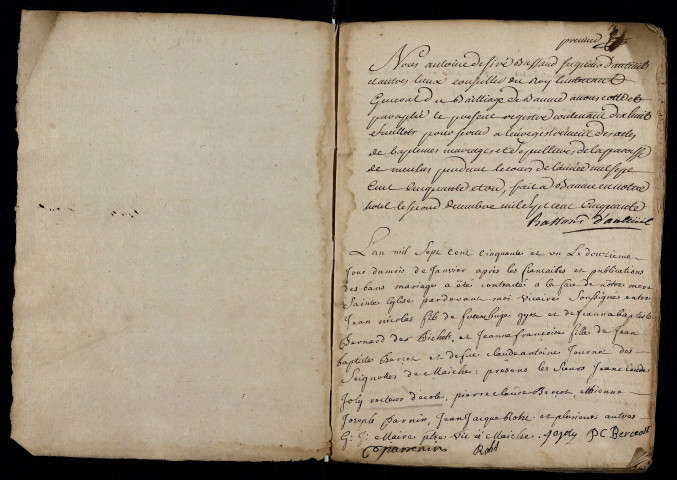 premier
Nous antoine desiré Bassand seigneur d'anteuil
et autres lieux conseiller du Roy lieutenant
General du Bailliage de Baume avons cotté et
paraphé le present registre contenant dix huit
feuillets pour servir a l'enregistrement des actes
de baptemes mariages et sepultures de la paroisse
de pendant le cours de l'année mil sept
cent cinquante et un, fait a Baume en notre
hotel le second decembre mil sept cent cinquante
Bassand d'anteuil
L'an mil Sept cent cinquante et un Le douzieme
Jour du mois de Janvier après les fiancailles et publications
des bans mariage a été contracté a la face de nôtre mere
Sainte Eglise pardevant moi vicaire Soussigné entre
Jean nicolas fils de et de Jeanne baptiste
Bernard des Bichets et Jeanne françoise fille de Jean
baptiste Bercot et de fue claude antoine Journot des
Seignottes de Maiche: presens les Sieurs Jean claude
Joly recteur d'ecole, pierre claude Bercot, Etienne
Joseph Parnin, Jean Jacque et plusieurs autres
G: J: Maire ptre vic à Maiche. Jojoly PC Bercot
Parrenin